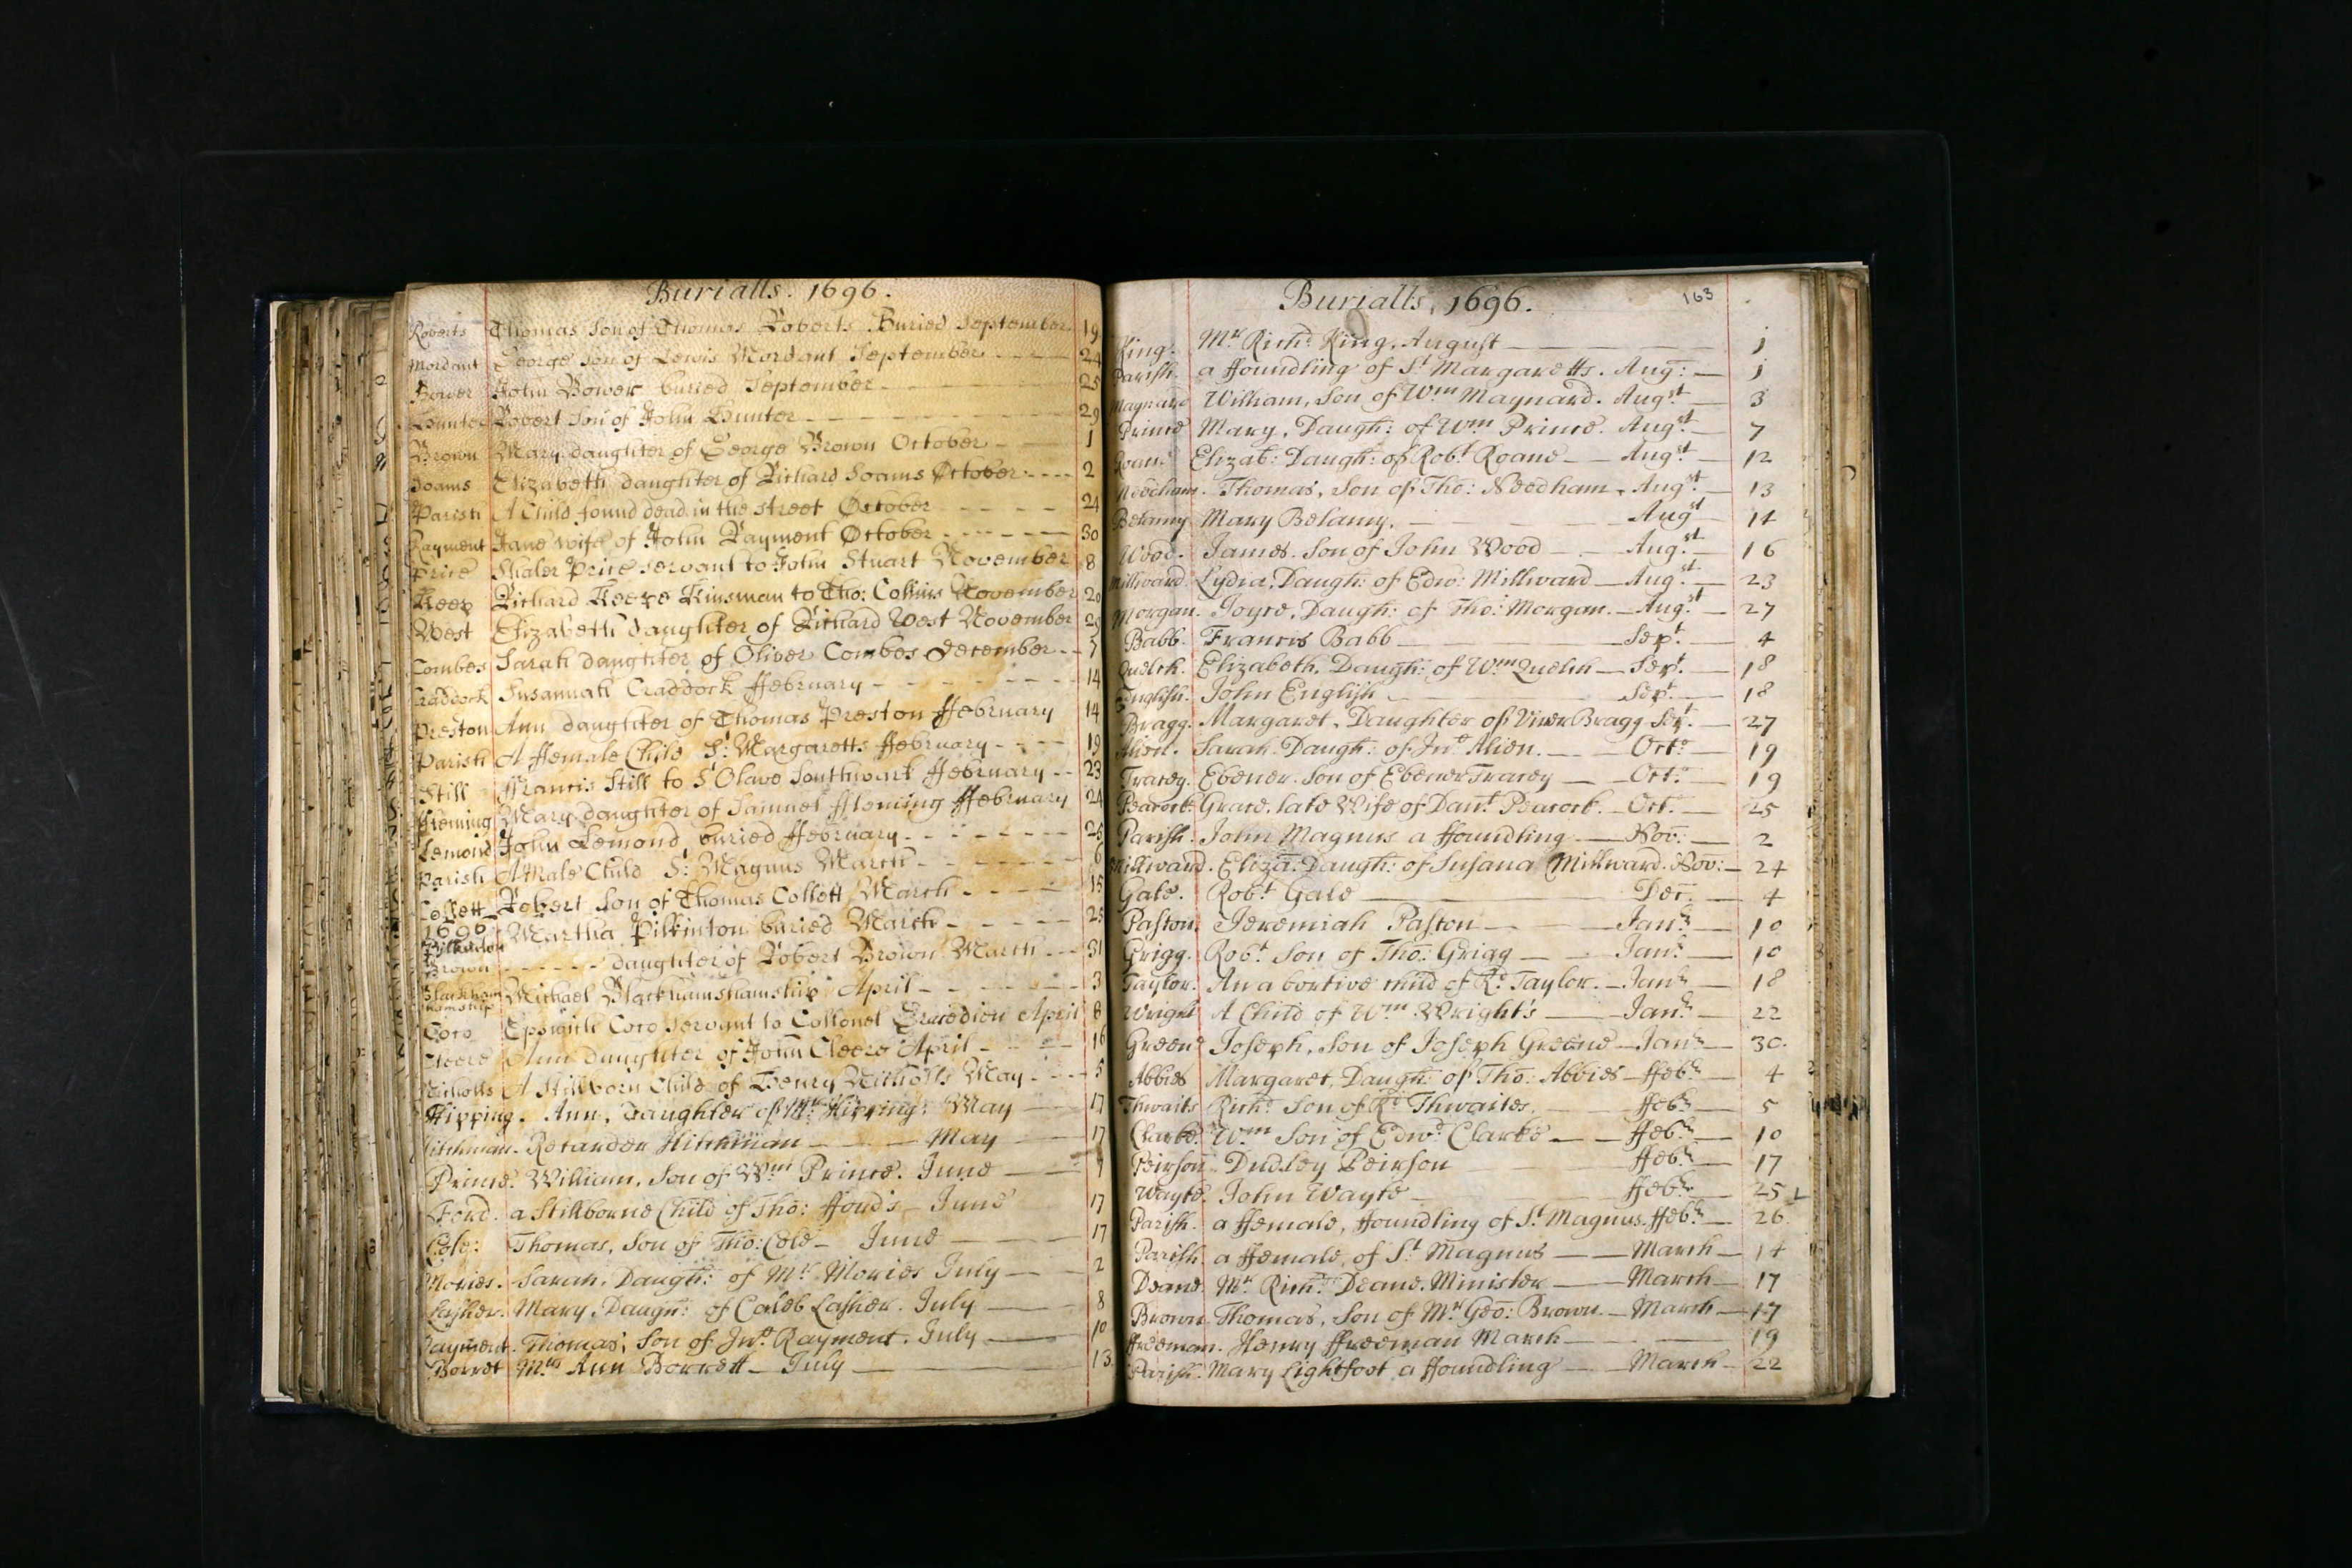 Burialls. 1696.
Roberts Thomas Son of Thomas Roberts Buried September 19
Mordant George Son of Lewis Mordant September 24
Bower John Bower buried September 25
Hunter Robert Son of John Hunter 29
Brown Mary daughter of George Brown October 1
Soams Elizabeth daughter of Richard Soams October 2
Parish A Child found dead in the street October 24
Rayment Jane wife of John Rayment October 30
Price Price servant to John Stuart November 8
Keep Richard Kinsman to Tho: Collins November 20
West Elizabeth daughter of Richard West November
Combes Sarah daughter of Oliver Combes December
Craddock Susannah Craddock ffebruary 14
Preston Ann daughter of Thomas Preston ffebruary 14
Parish A ffemale Child St: Margaretts ffebruary 19
Still ffrancis Still to St Olave Southwark ffebruary 23
ffleming Mary daughter of Samuel ffleming ffebruary 24
Lemond John Lemond buried ffebruary
Parish A Male Child St: Magnus March 6
Collett Robert Son of Thomas Collett March 15
1696
Pilkinton Martha Pilkinton buried March 25
Brown daughter of Robert Brown March 31
Michael April 3
Coro Coro servant to Collonel April 8
Cleere Ann daughter of John Cleere April 16
Nicholls A Stillborn Child of Henry Nicholls May 5
Hipping. Ann, Daughter of Mr Hipping: May 17
Hitchman. Hitchman May 17
Prince. William, Son of Wm Prince. June
Ford. a Stillborne Child of Tho: fford's June 17
Cole: Thomas, Son of Tho: Cole June 17
Mories. Sarah, Daugh: of Mr Mories July 2
Lasher. Mary, Daugh: of Caleb Lasher. July 8
Rayment. Thomas, Son of Jno Rayment. July 10
Borret Mrs Ann Borrett July 13
Burialls, 1696. 163
King. Mr Richd King. August 1
Parish. a ffoundling of St Margaretts. Aug: 1
Maynard William, Son of Wm Maynard. Augst 3
Prince Mary, Daugh: of Wm Prince. Augst 7
Roane Elizab: Daugh: of Robt Roane Augst 12
Needham. Thomas, Son of Tho: Needham. Augst 13
Belamy Mary Belamy. Augst 14
Wood. James. Son of John Wood Augst 16
Millward. Lydia, Daugh: of Edw: Millward Augst 23
Morgan. Joyce, Daugh: of Tho: Morgan. Augst 27
Babb. Francis Babb Sept. 4
Elizabeth, Daugh: of Wm Sept. 18
English. John English Sept. 18
Bragg. Margaret, Daughter of Bragg Sept. 27
Alien. Sarah. Daugh: of Jno Alien. Octo 19
Tracey. Ebener. Son of Ebener Tracey Octo 19
Peacock Grace, late Wife of Danl Peacock. Oct. 25
Parish. John Magnus a ffoundling Nov: 2
Millward. Eliza: Daugh: of Susana Millward. Nov: 24
Gale. Robt Gale Dec: 4
Paston. Jeremiah Paston Janr 10
Grigg. Robt Son of Tho: Grigg Janr 10
Taylor. An abortive child of Rd Taylor. Janr 18
Wright A Child of Wm Wright's Janr 22
Greene Joseph, Son of Joseph Greene Janr 30.
Abbies Margaret, Daugh: of Tho: Abbies ffebr 4
Thwaits Richd Son of Rd Thwaites. ffebr 5
Clarke. Wm Son of Edwd Clarke ffebr 10
Peirson Dudley Peirson ffebr 17
Wayte. John Wayte ffebr 25
Parish. a ffemale, ffoundling of St Magnus. ffebr 26.
Parish. a ffemale, of St Magnus March 14
Deane. Mr. Richd Deane. Minister March 17
Brown Thomas, Son of Mr Geo: Brown. March 17
ffreeman. Henry ffreeman March 19
Parish. Mary Lightfoot a ffoundling March 22